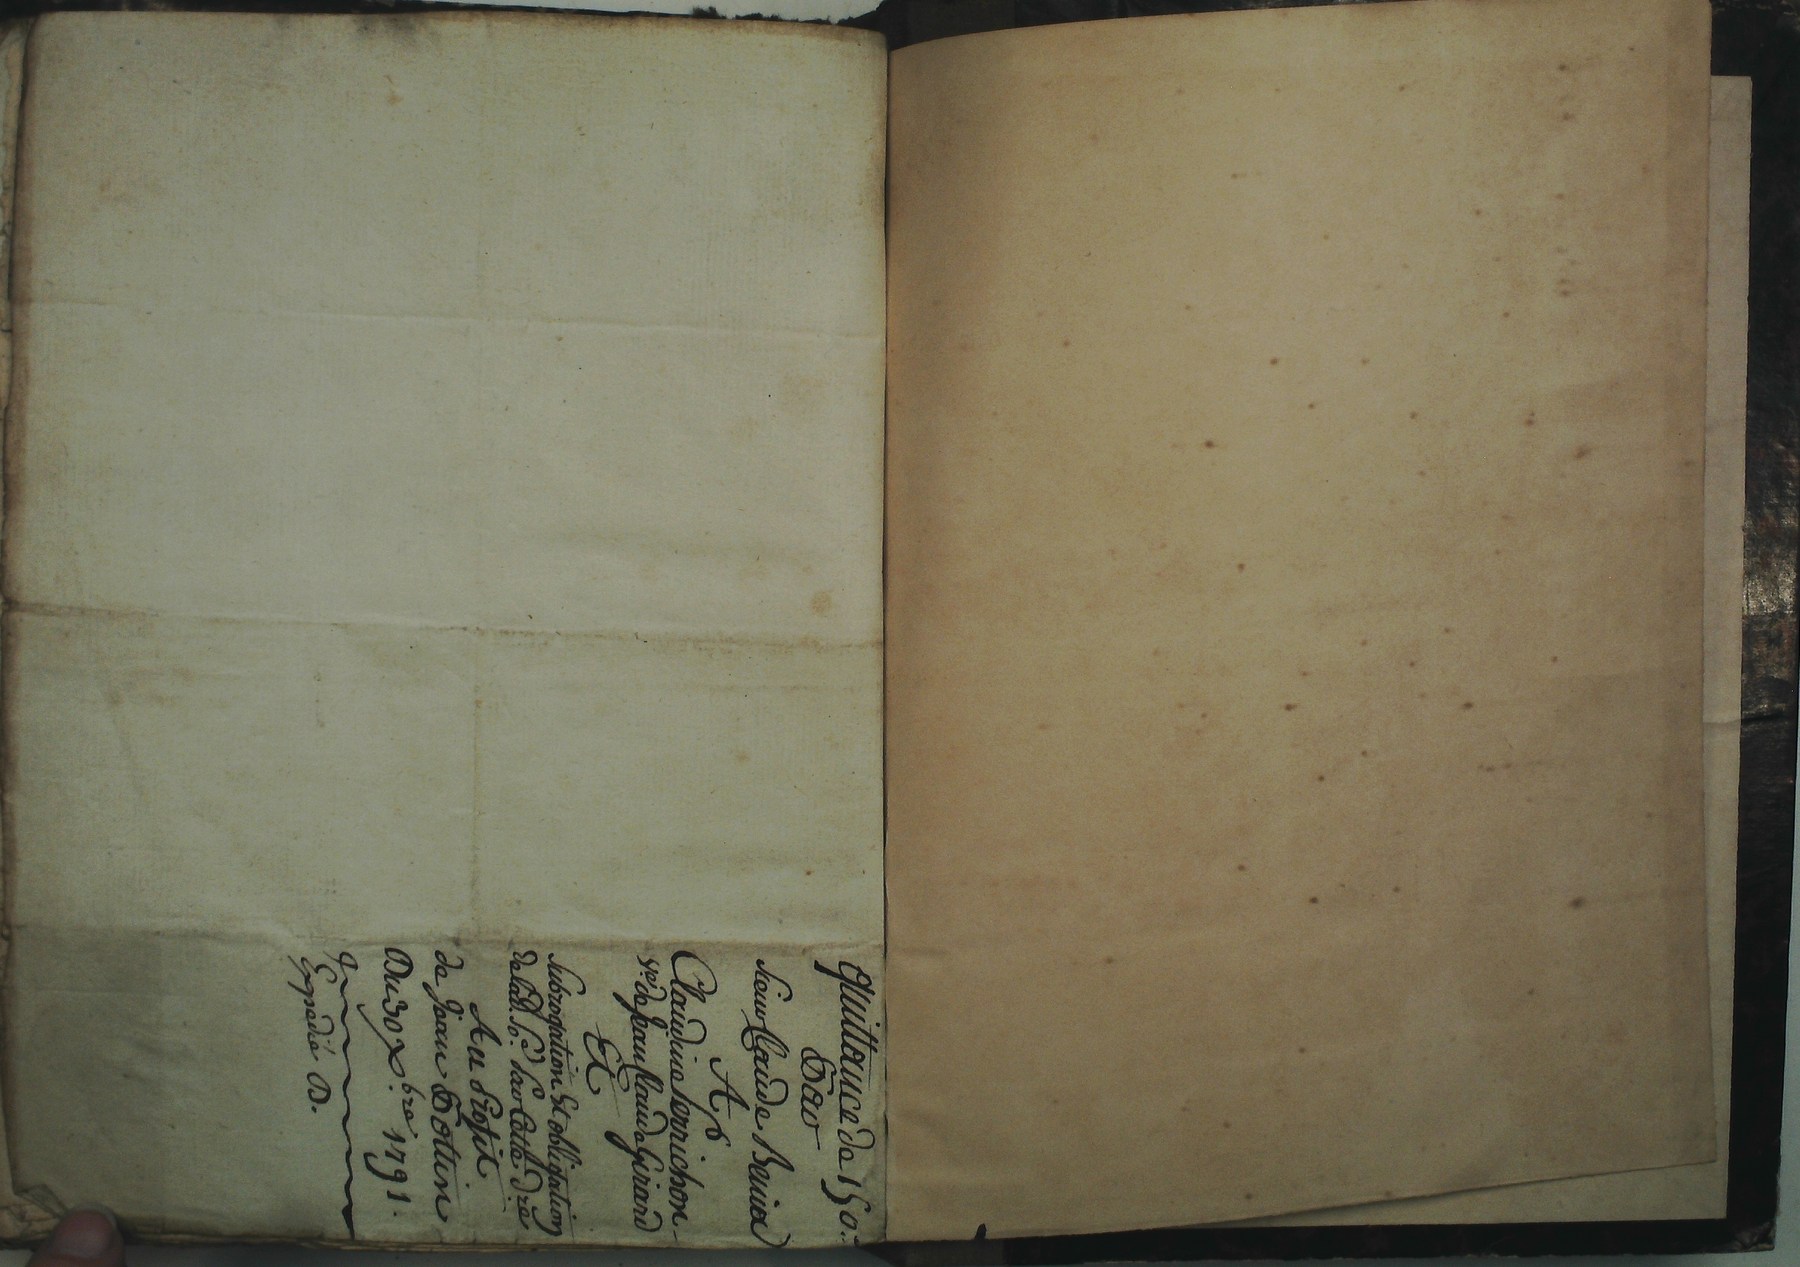 quittance de 150.
Par
Sieur Claude Benier
A
Claudine Perrichon
ve. de Jean Claude Girard
Et
subrogation Et obligation
de lad. so. par Cette d.re
Au Profit
de Jean Cottin
Du 30 x.bre 1791.
Expédié